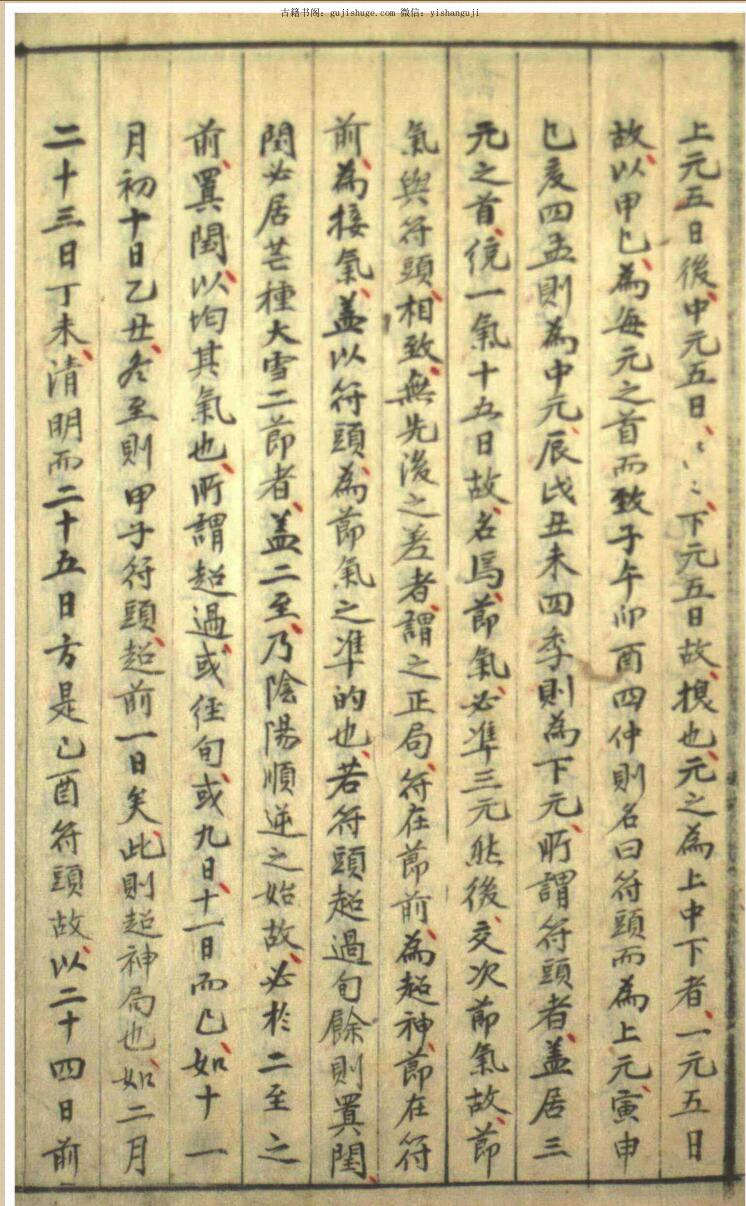 古籍书阁：gujishuge.com 微信：yishanguji
上元五日後、中元五日、、、下元五日故、揔也、元之為上中下者、一元五日
故、以甲己、為每元之首而致子午卯酉四仲則名曰符頭而為上元、寅申
巳亥四孟則為中元、辰戌丑未四季則為下元、所謂符頭者、盖居三
元之首、統一氣十五日故、名焉、節氣、必準三元然後、交次節氣故、節
氣與符頭、相致、無先後之差者、謂之正局、符在節前、為超神、節在符
前、為接氣、盖以符頭、為節氣之準的也、若符頭超過旬餘則置閏、
閏必居芒種大雪二節者、盖二至、乃陰陽順逆之始故、必於二至之
前、置閏、以均其氣也、所謂超過、或徑旬、或九日、十一日而已、如十一
月初十日乙丑、冬至則甲子符頭、超前一日矣、此則超神局也、如二月
二十三日丁未、清明而二十五日方是己酉符頭故、以二十四日前